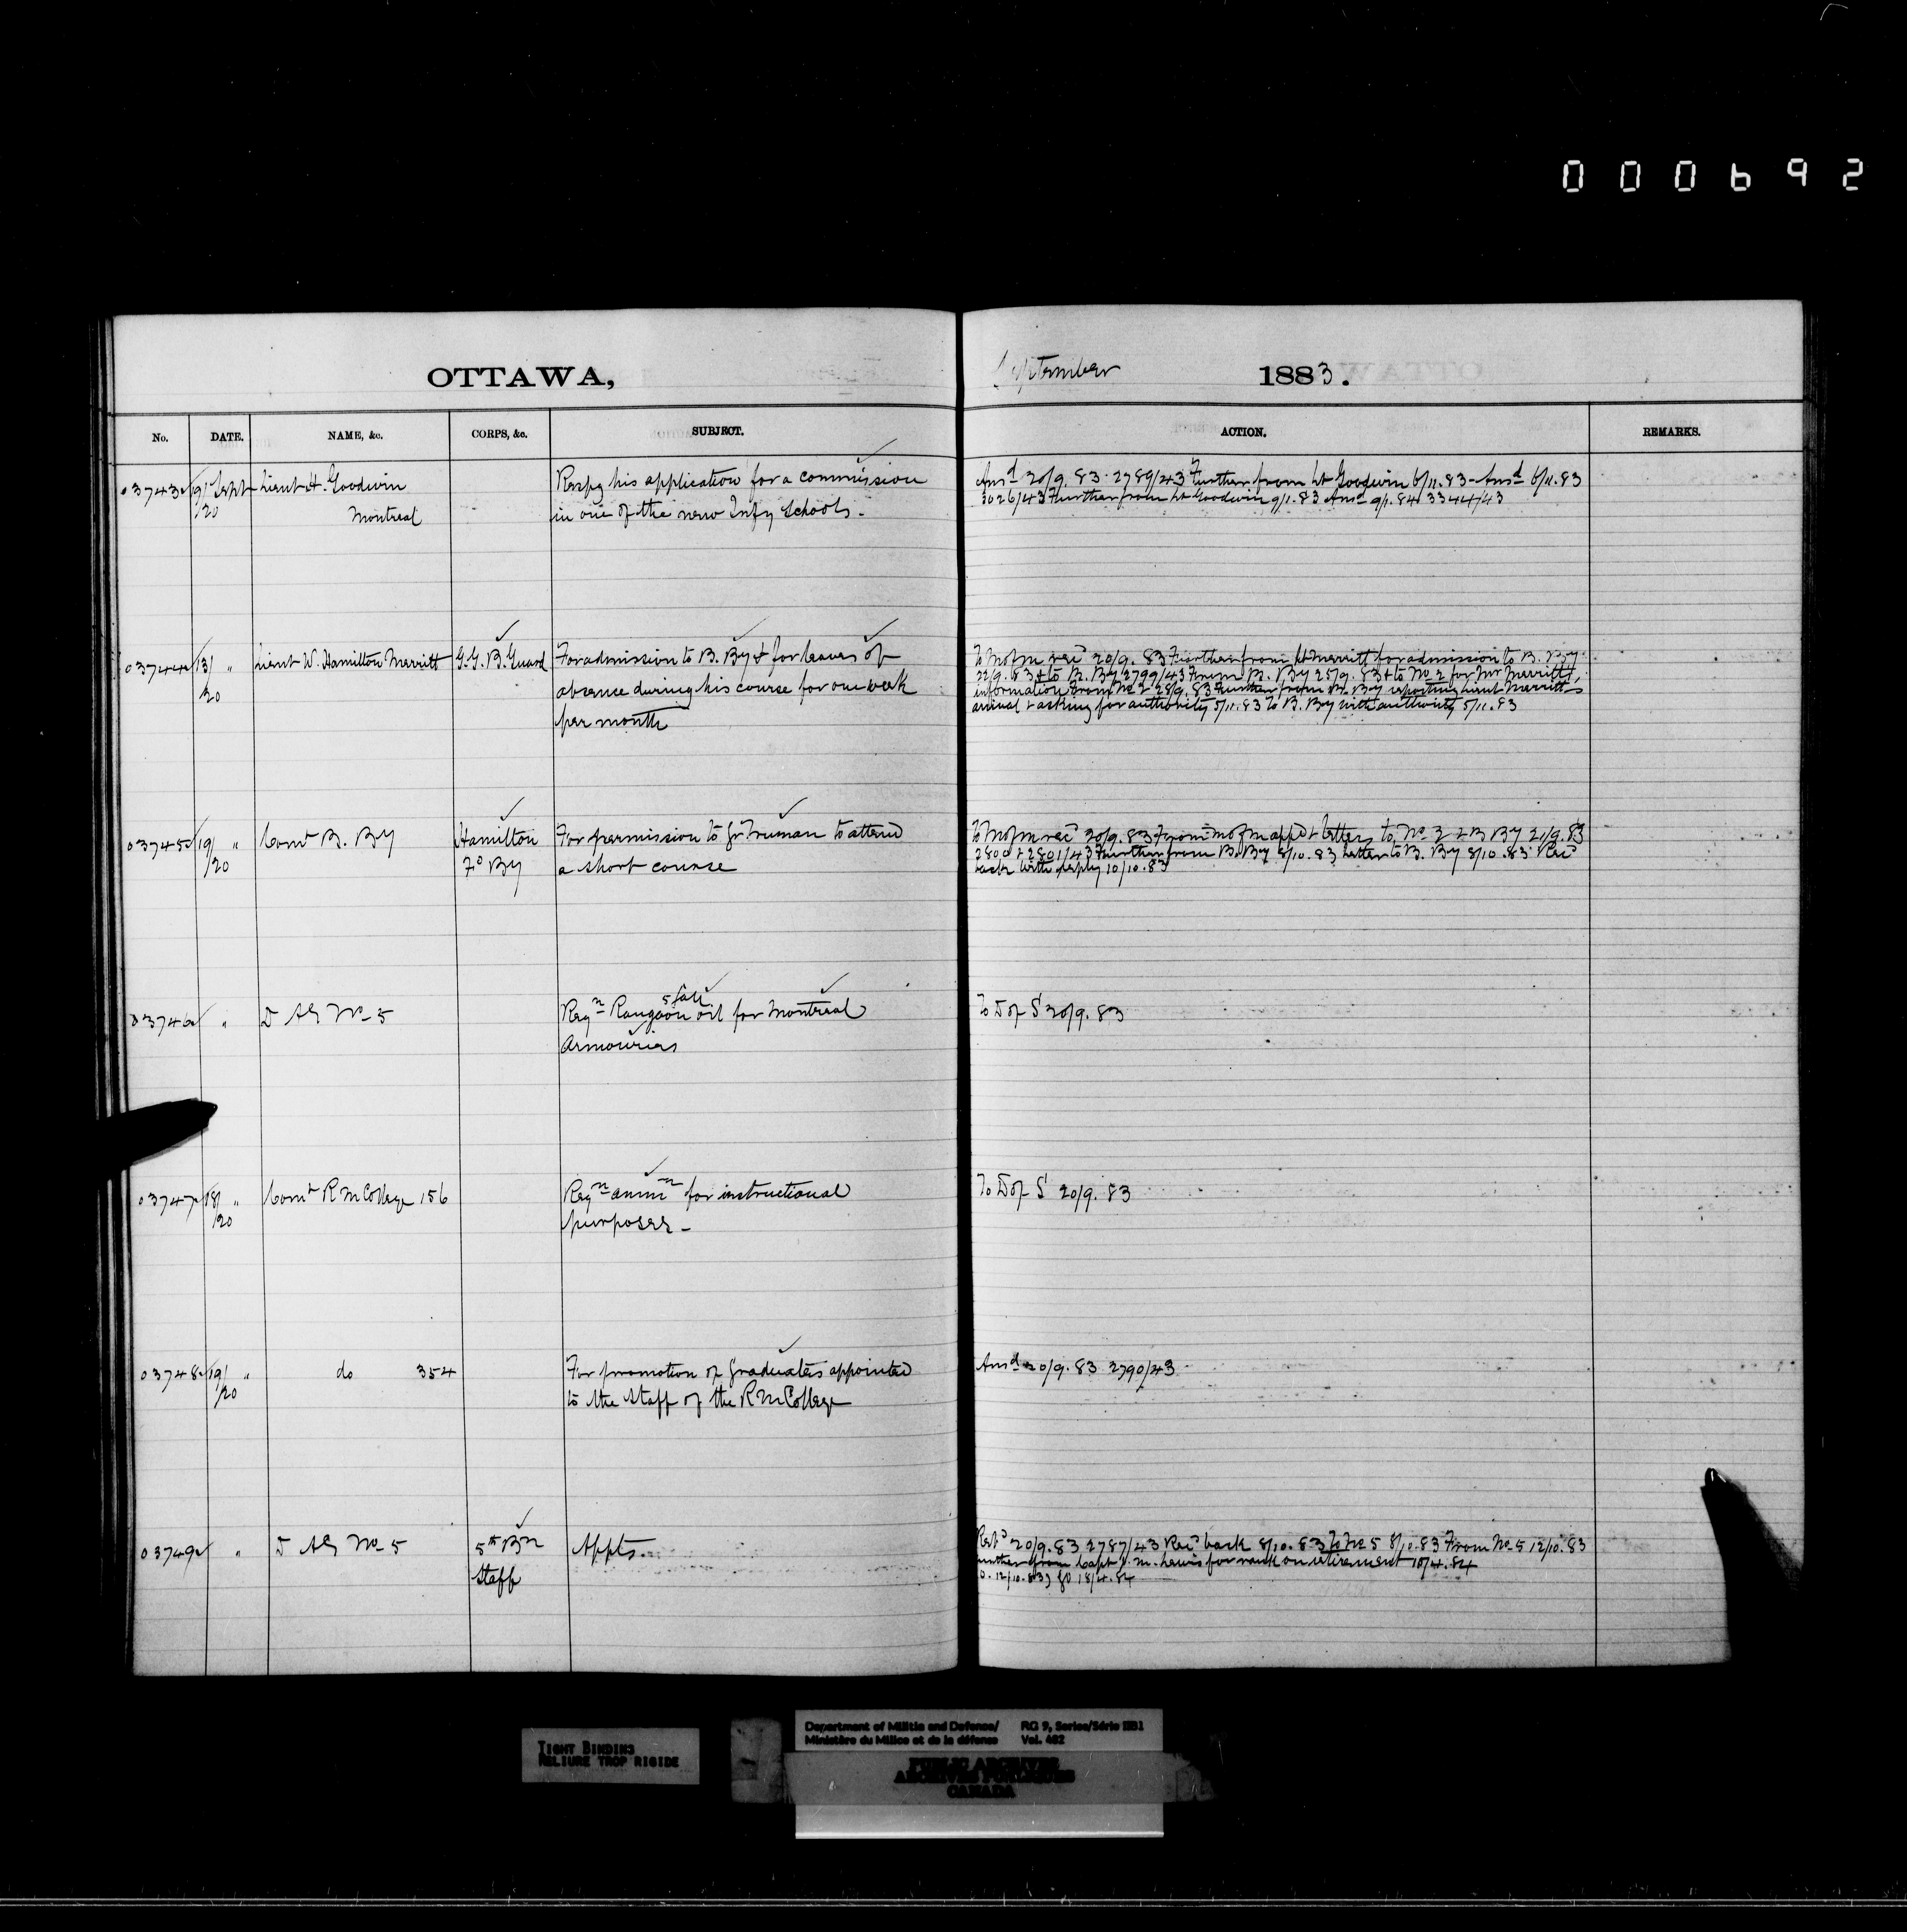 000692
OTTAWA,
September 1883.
No. DATE. NAME, &c. CORPS, &c. SUBJECT. ACTION. REMARKS.
03743 19/20 Sept Lieut H. Goodwin
Montreal
Respg his application for a commission
in one of the new Infy Schools.
Ansd 20/9.83. 2789/43 Further from Lt Goodwin 6/11.83 - Ansd 6/11.83
3026/43 Further from Lt Goodwin 9/1.83 Ansd 9/1.84 3344/43
03744 13/20 " Lieut W. Hamilton Merritt G.G.B. Guard
For admission to B. By & for leaves of
absence during his course for one week
per month
To Mofm rec'd 20/9.83 Further from Lt Merritt for admission to B. By
22/9.83 & to B. By 2799/43 From B. By 25/9.83 & to No 2 for Mr Merritt's
information From No 2 28/9.83 Further from B. By reporting Lieut Merritt's
arrival & asking for authority 5/11.83 To B. By with authority 5/11.83
03745 19/20 " Comt B. By
Hamilton
Fd By
For permission to Gr Truman to attend
a short course
To Mofm rec'd 20/9.83 From Mofm appd & letters to No 2 & B By 21/9.83
2800 & 2801/43 Further from B. By 8/10.83 Letter to B. By 8/10.83 Rec'd
back with reply 10/10.83
03746 " D AG No 5
Reqn Rangoon oil 5 gall. for Montreal
Armouries
To D of S 20/9.83
03747 18/20 " Comt R M College 156
Reqn ammn for instructional
purposes -
To D of S 20/9.83
03748 19/20 " do 354
For promotion of Graduates appointed
to the staff of the R M College
Ansd 20/9.83 2790/43
03749 " D AG No 5
5th Bn
Staff
Appts.
Retd 20/9.83 2787/43 Rec'd back 8/10.83 To No 5 8/10.83 From No 5 12/10.83
further from Capt for rank on retirement 10/4.84
12/10.83) GO 18/4.84
TIGHT BINDING
RELIURE TROP RIGIDE
Department of Militia and Defense/
Ministère du Milice et de la défense
RG 9, Series/Série IIB1
Vol. 462
PUBLIC ARCHIVES
ARCHIVES PUBLIQUES
CANADA